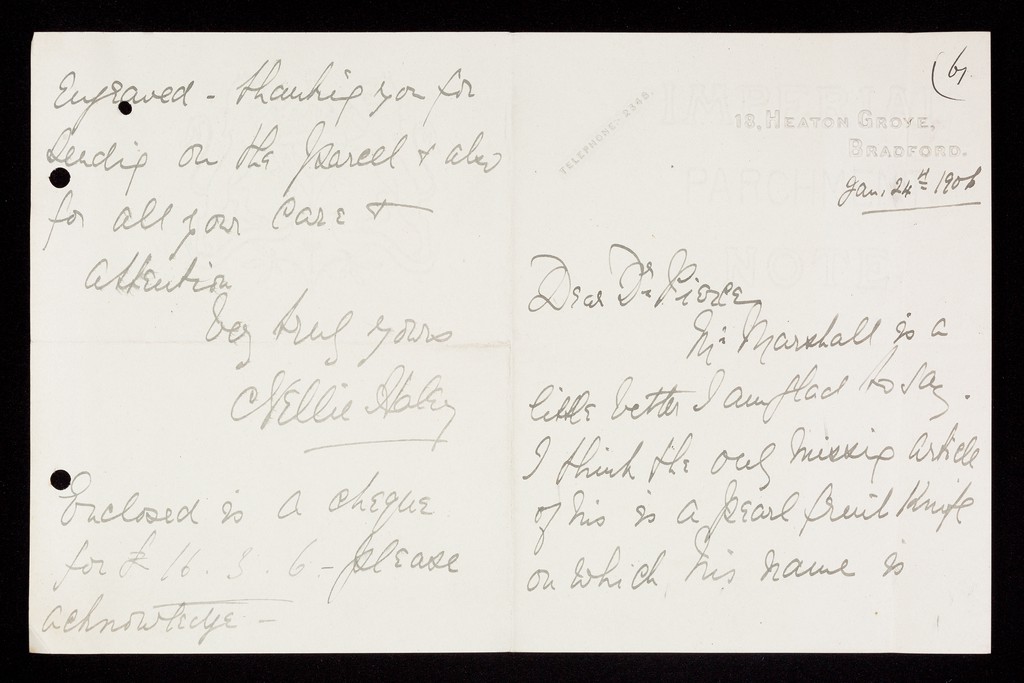 (6).
TELEPHONE: 2348.
IMPERIAL
PARCHMENT
NOTE
18, HEATON GROVE,
BRADFORD.
Jan. 24th 1906
Dear Dr Pierce
Mr Marshall is a
little better I am glad to say.
I think the only missing article
of his is a pearl fruit knife
on which his name is
Engraved - thanking you for
sending on the parcel & also
for all your care &
attention
Very truly yours
Nellie Haley
Enclosed is a cheque
for £ 16. 3. 6 - please
acknowledge -